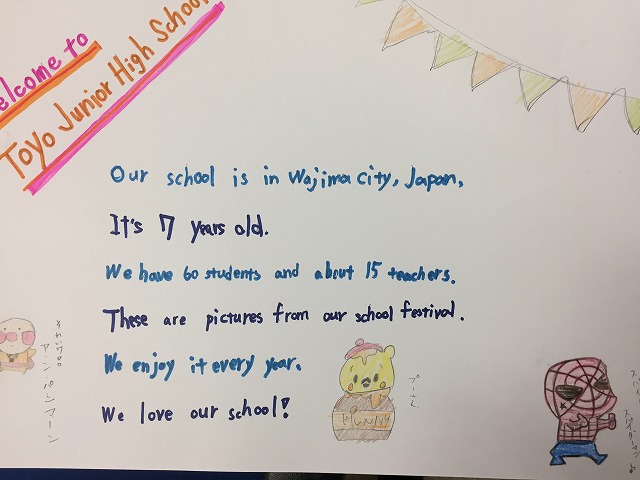 Welcome to
Toyo Junior High School
Our school is in Wajima City, Japan.
It's 7 years old.
We have 60 students and about 15 teachers.
These are pictures from our school festival.
We enjoy it every year.
We love our school!
それいけ!
アンパンマーン
プーさん
HUNNY
スパイダーマン